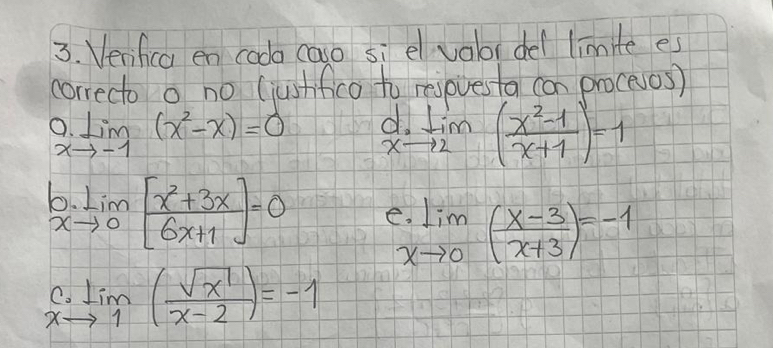 3. Verifica en cada caso si el valor del límite es
correcto o no (justifica tu respuesta con procesos)
a. Lim x→-1 (x²-x)=0
d. Lim x→2 ((x²-1)/(x+1))=1
b. Lim x→0 [(x²+3x)/(6x+1)]=0
e. Lim x→0 ((x-3)/(x+3))=-1
c. Lim x→1 (√x/(x-2))=-1